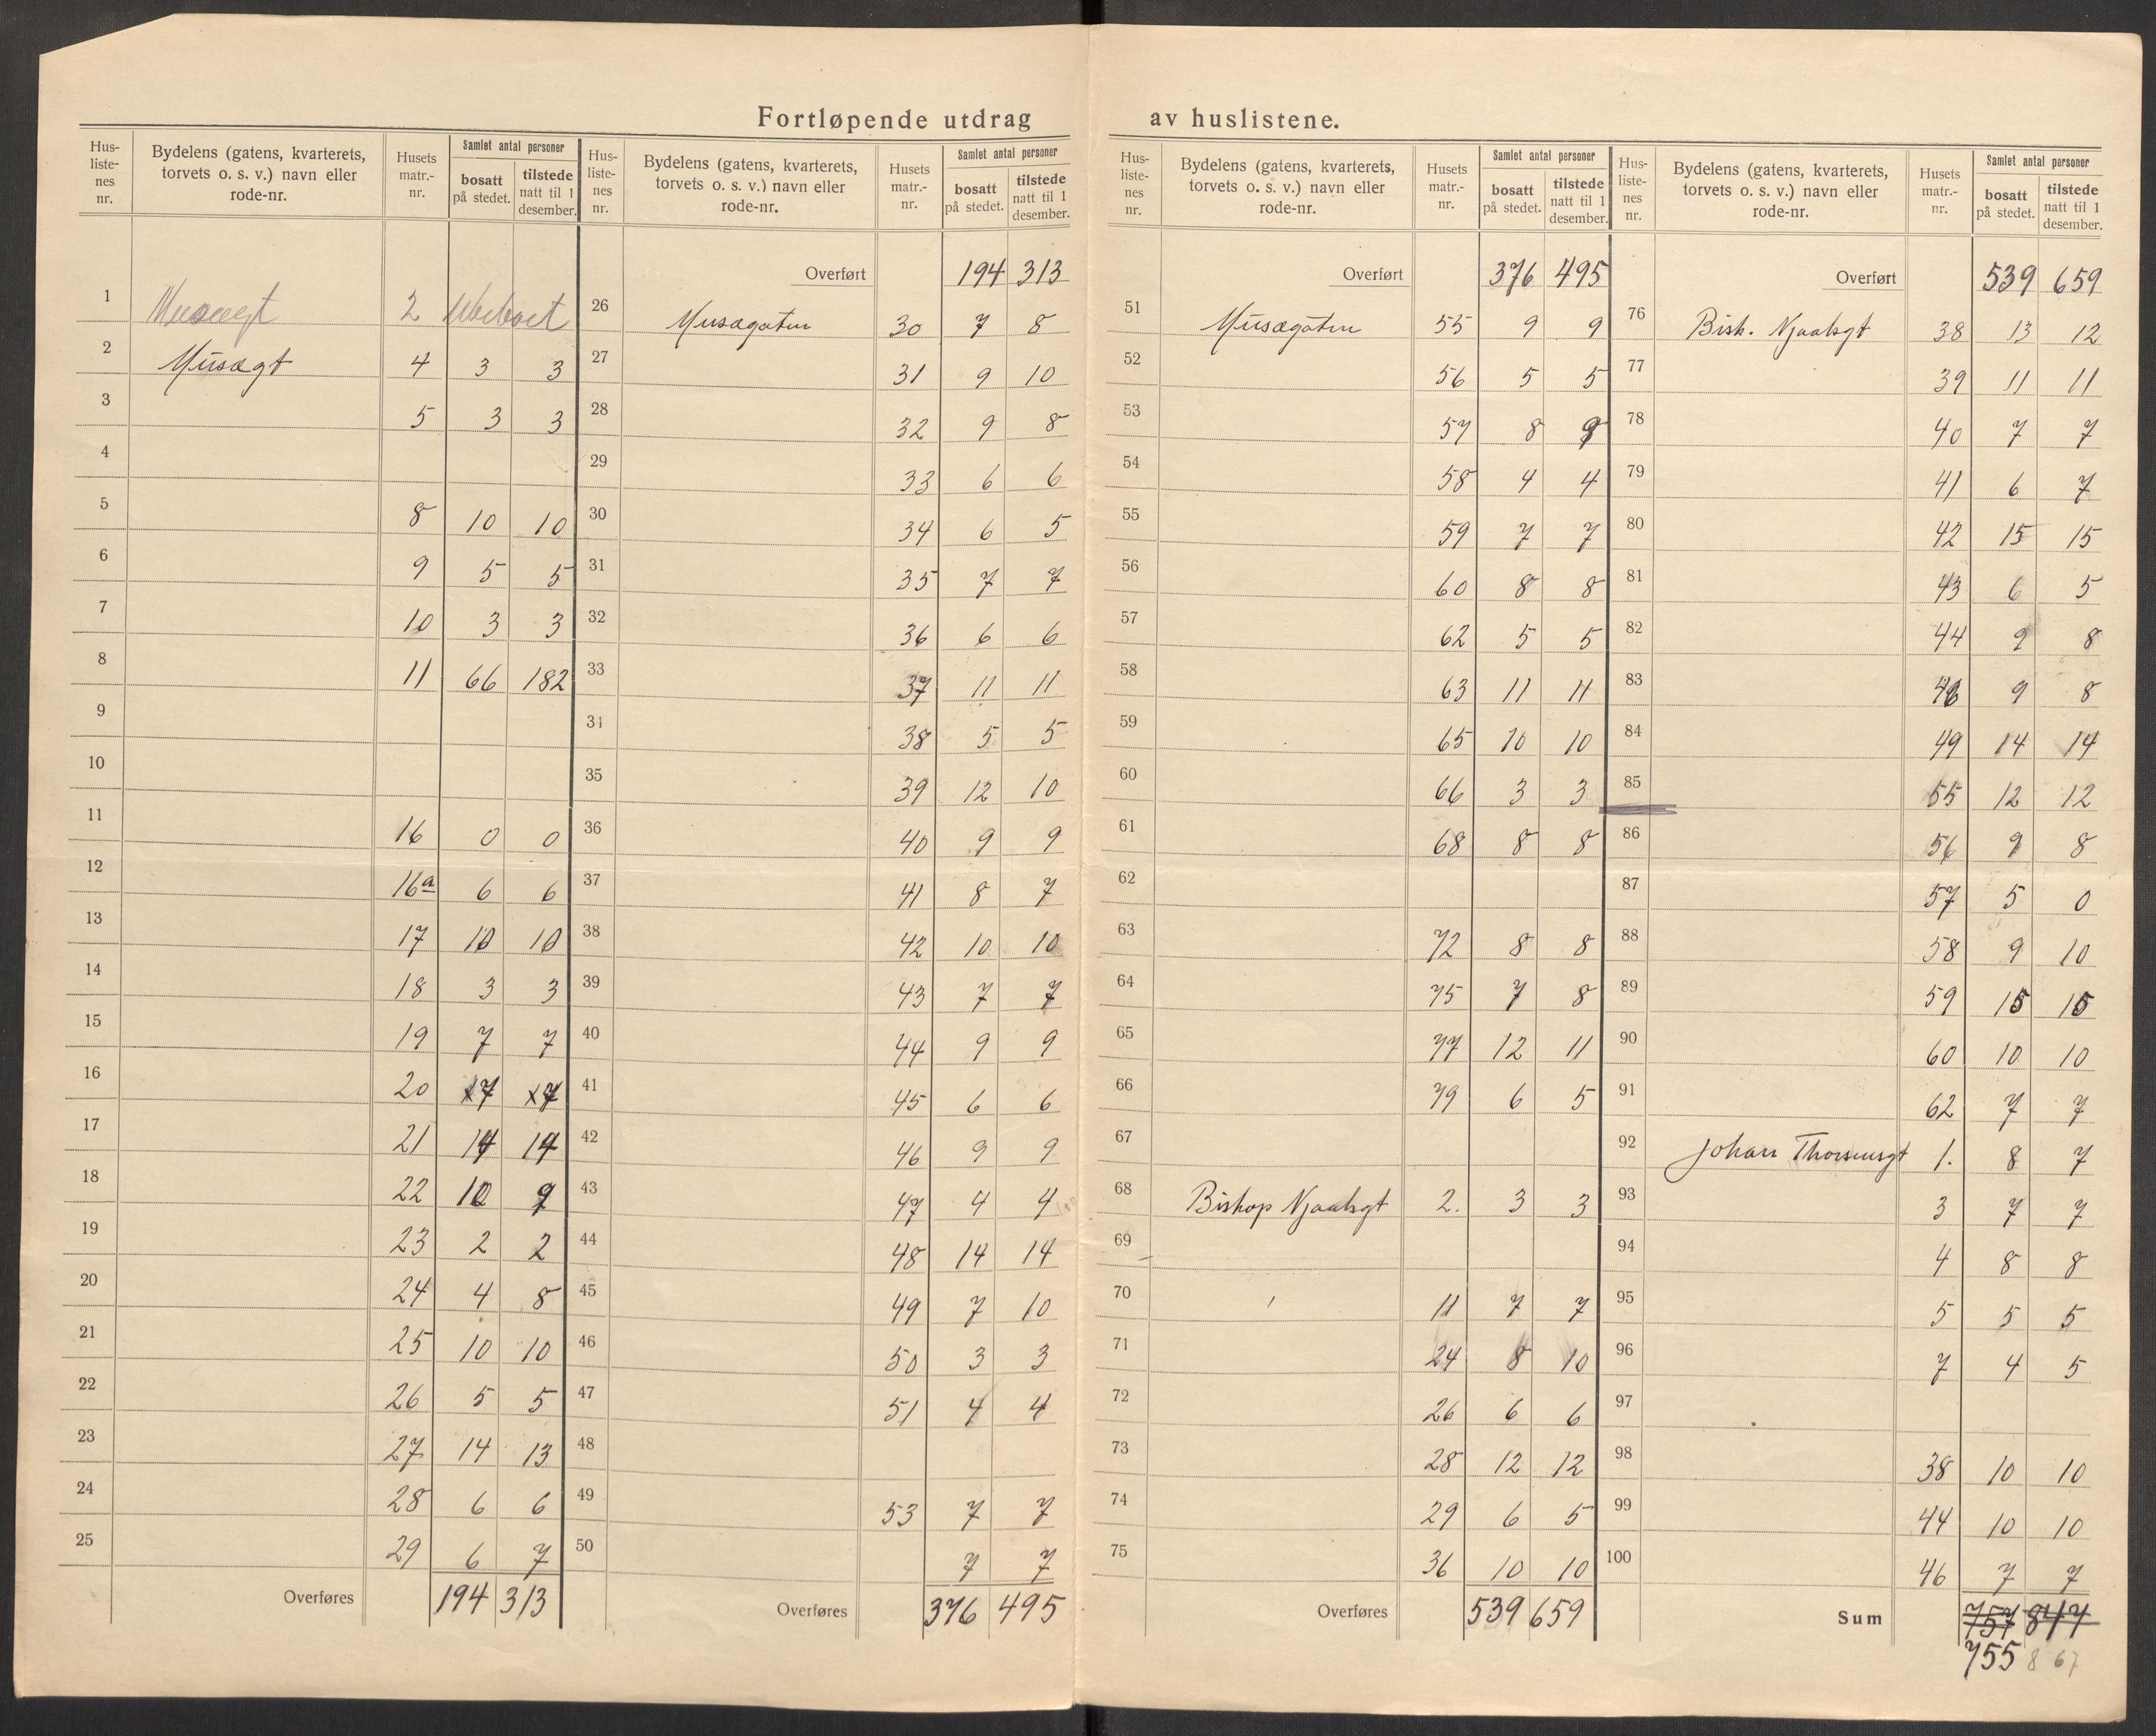 Fortløpende utdrag av huslistene.
Hus-listenes nr. | Bydelens (gatens, kvarterets, torvets o. s. v.) navn eller rode-nr. | Husets matr.-nr. | Samlet antal personer bosatt på stedet. | tilstede natt til 1 desember.
1 Musegt 2 Ubeboet
2 Musægt 4 3 3
3 5 3 3
4
5 8 10 10
6 9 5 5
7 10 3 3
8 11 66 182
9
10
11 16 0 0
12 16a 6 6
13 17 10 10
14 18 3 3
15 19 7 7
16 20 7 7
17 21 14 14
18 22 10 9
19 23 2 2
20 24 4 8
21 25 10 10
22 26 5 5
23 27 14 13
24 28 6 6
25 29 6 7
Overføres 194 313
Hus-listenes nr. | Bydelens (gatens, kvarterets, torvets o. s. v.) navn eller rode-nr. | Husets matr.-nr. | Samlet antal personer bosatt på stedet. | tilstede natt til 1 desember.
Overført 194 313
26 Musægaten 30 7 8
27 31 9 10
28 32 9 8
29 33 6 6
30 34 6 5
31 35 7 7
32 36 6 6
33 37 11 11
34 38 5 5
35 39 12 10
36 40 9 9
37 41 8 7
38 42 10 10
39 43 7 7
40 44 9 9
41 45 6 6
42 46 9 9
43 47 4 4
44 48 14 14
45 49 7 10
46 50 3 3
47 51 4 4
48
49 53 7 7
50 7 7
Overføres 376 495
Hus-listenes nr. | Bydelens (gatens, kvarterets, torvets o. s. v.) navn eller rode-nr. | Husets matr.-nr. | Samlet antal personer bosatt på stedet. | tilstede natt til 1 desember.
Overført 376 495
51 Musægaten 55 9 9
52 56 5 5
53 57 8 9
54 58 4 4
55 59 7 7
56 60 8 8
57 62 5 5
58 63 11 11
59 65 10 10
60 66 3 3
61 68 8 8
62
63 72 8 8
64 75 7 8
65 77 12 11
66 79 6 5
67
68 Bishop Njaalsgt 2. 3 3
69
70 11 7 7
71 24 8 10
72 26 6 6
73 28 12 12
74 29 6 5
75 36 10 10
Overføres 539 659
Hus-listenes nr. | Bydelens (gatens, kvarterets, torvets o. s. v.) navn eller rode-nr. | Husets matr.-nr. | Samlet antal personer bosatt på stedet. | tilstede natt til 1 desember.
Overført 539 659
76 Bisk. Njaalsgt 38 13 12
77 39 11 11
78 40 7 7
79 41 6 7
80 42 15 15
81 43 6 5
82 44 9 8
83 46 9 8
84 49 14 14
85 55 12 12
86 56 9 8
87 57 5 0
88 58 9 10
89 59 15 15
90 60 10 10
91 62 7 7
92 Johan Thorsensgt 1. 8 7
93 3 7 7
94 4 8 8
95 5 5 5
96 7 4 5
97
98 38 10 10
99 44 10 10
100 46 7 7
Sum 757 847
755 867